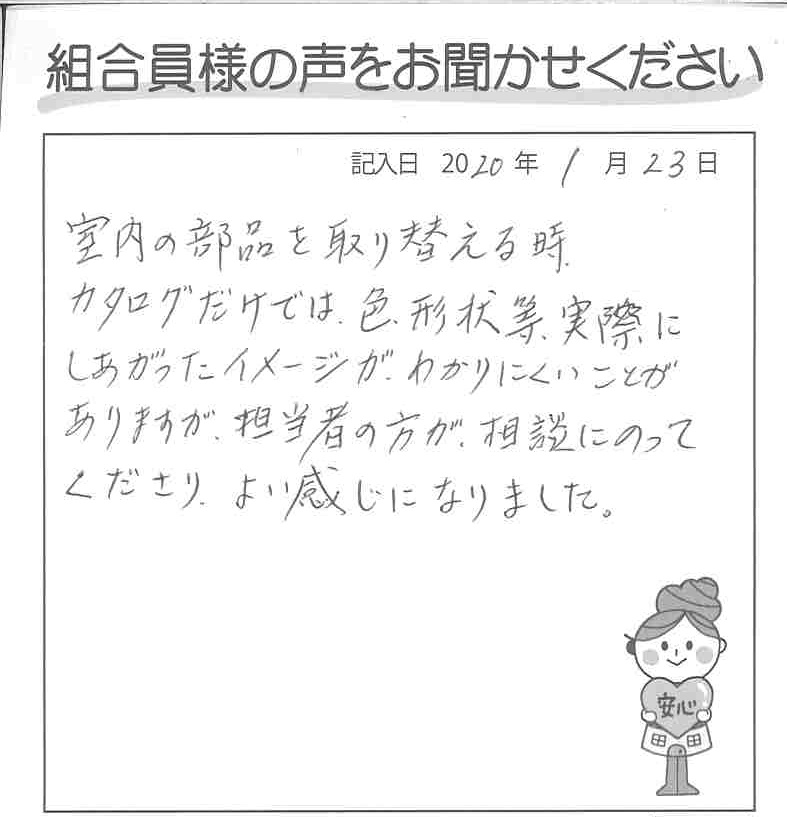 組合員様の声をお聞かせください
記入日 2020年 1月23日
室内の部品を取り替える時、
カタログだけでは、色、形状等、実際に
しあがったイメージが、わかりにくいことが
ありますが、担当者の方が、相談にのって
くださり、よい感じになりました。
安心